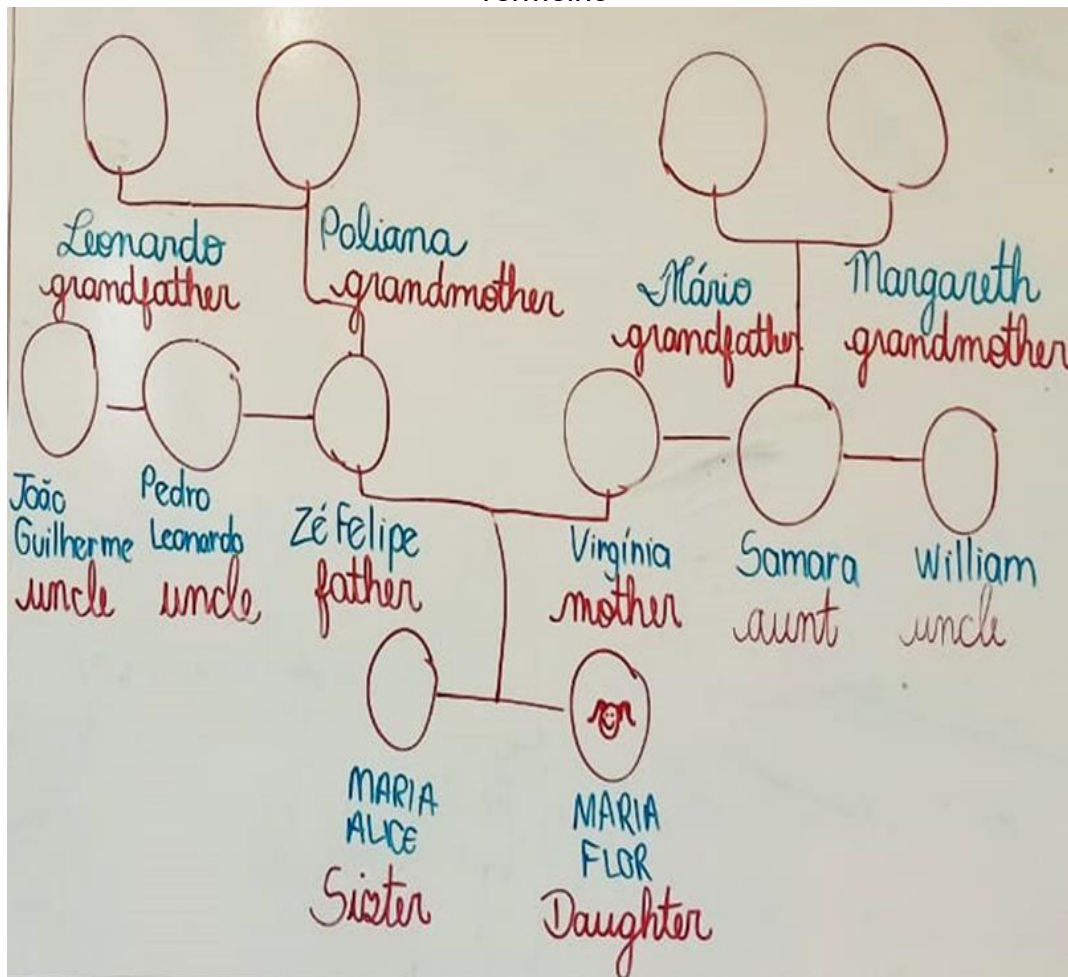 Leonardo
grandfather
Poliana
grandmother
Mário
grandfather
Margareth
grandmother
João
Guilherme
uncle
Pedro
Leonardo
uncle
Zé Felipe
father
Virgínia
mother
Samara
aunt
William
uncle
MARIA
ALICE
Sister
MARIA
FLOR
Daughter